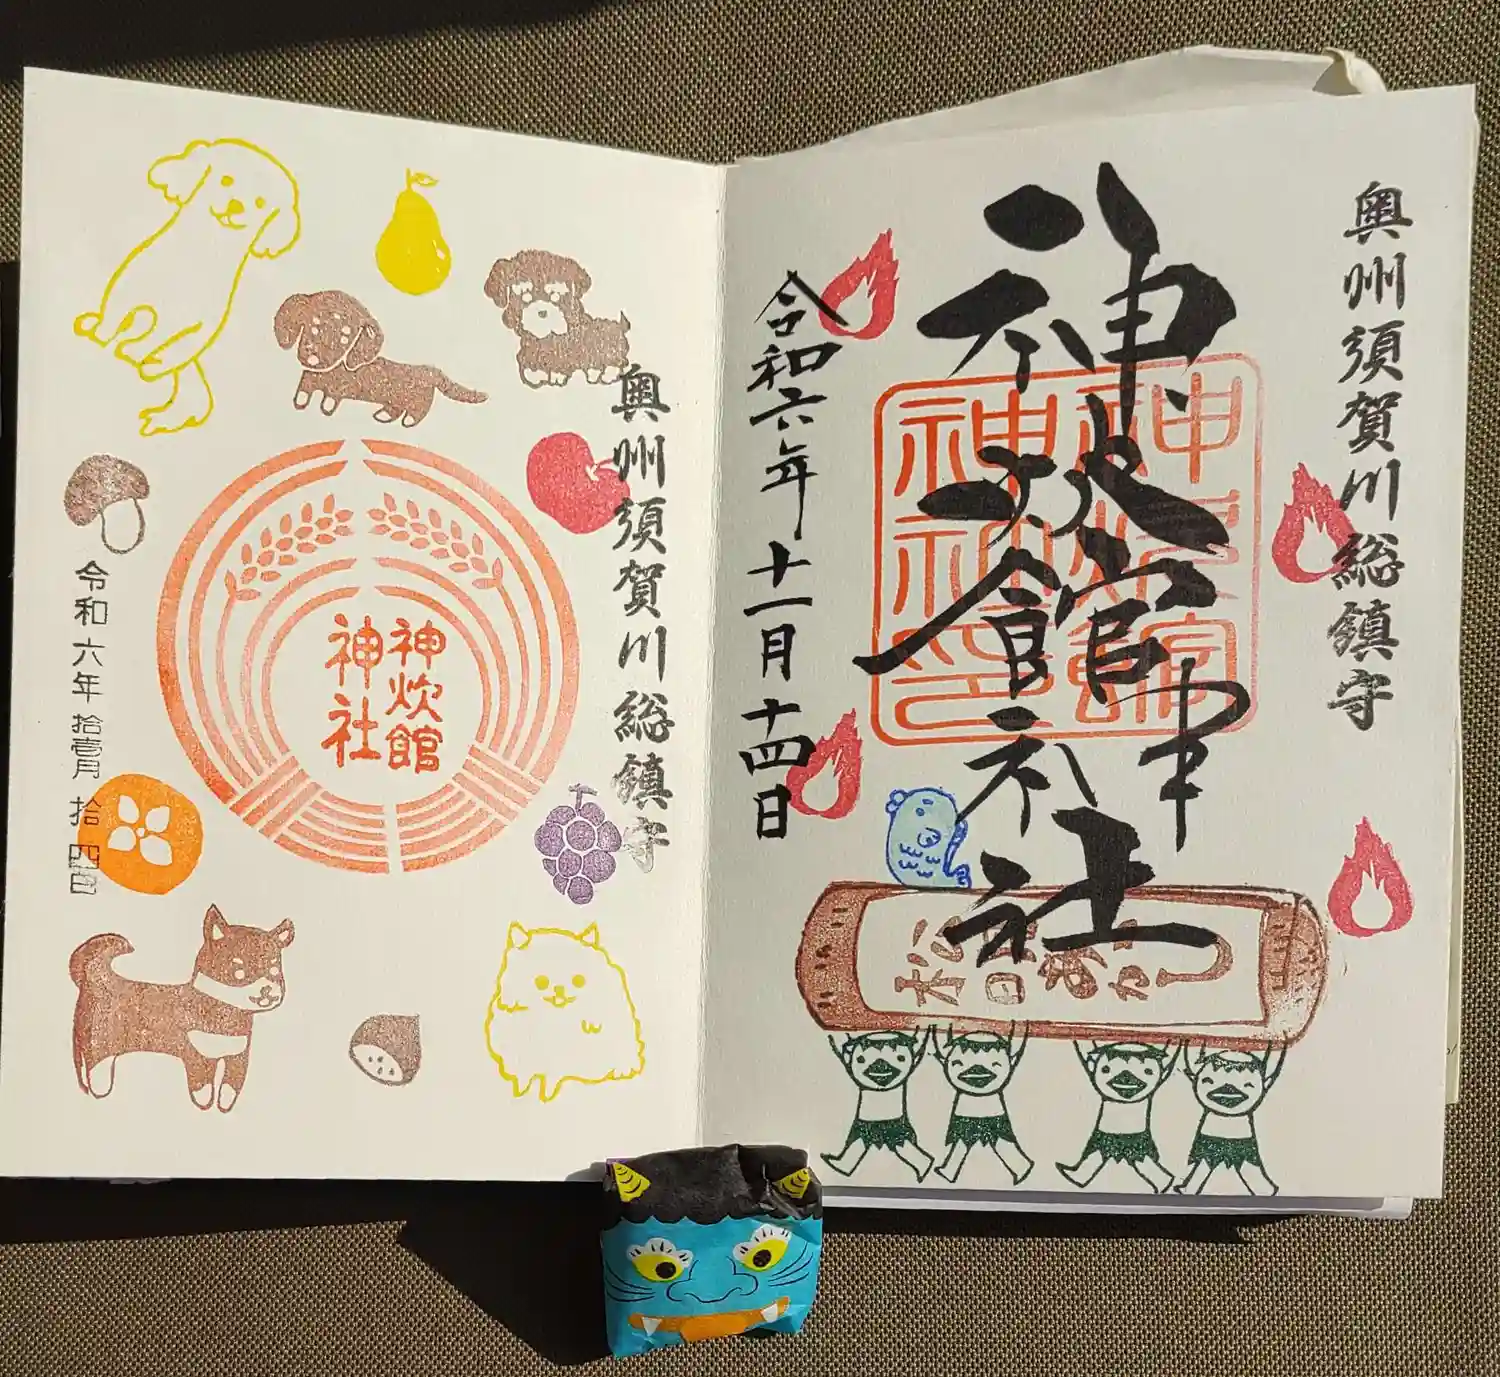 奥州須賀川総鎮守
神炊館神社
令和六年十一月十四日
奥州須賀川総鎮守
神炊館
神社
令和六年拾壱月拾四日